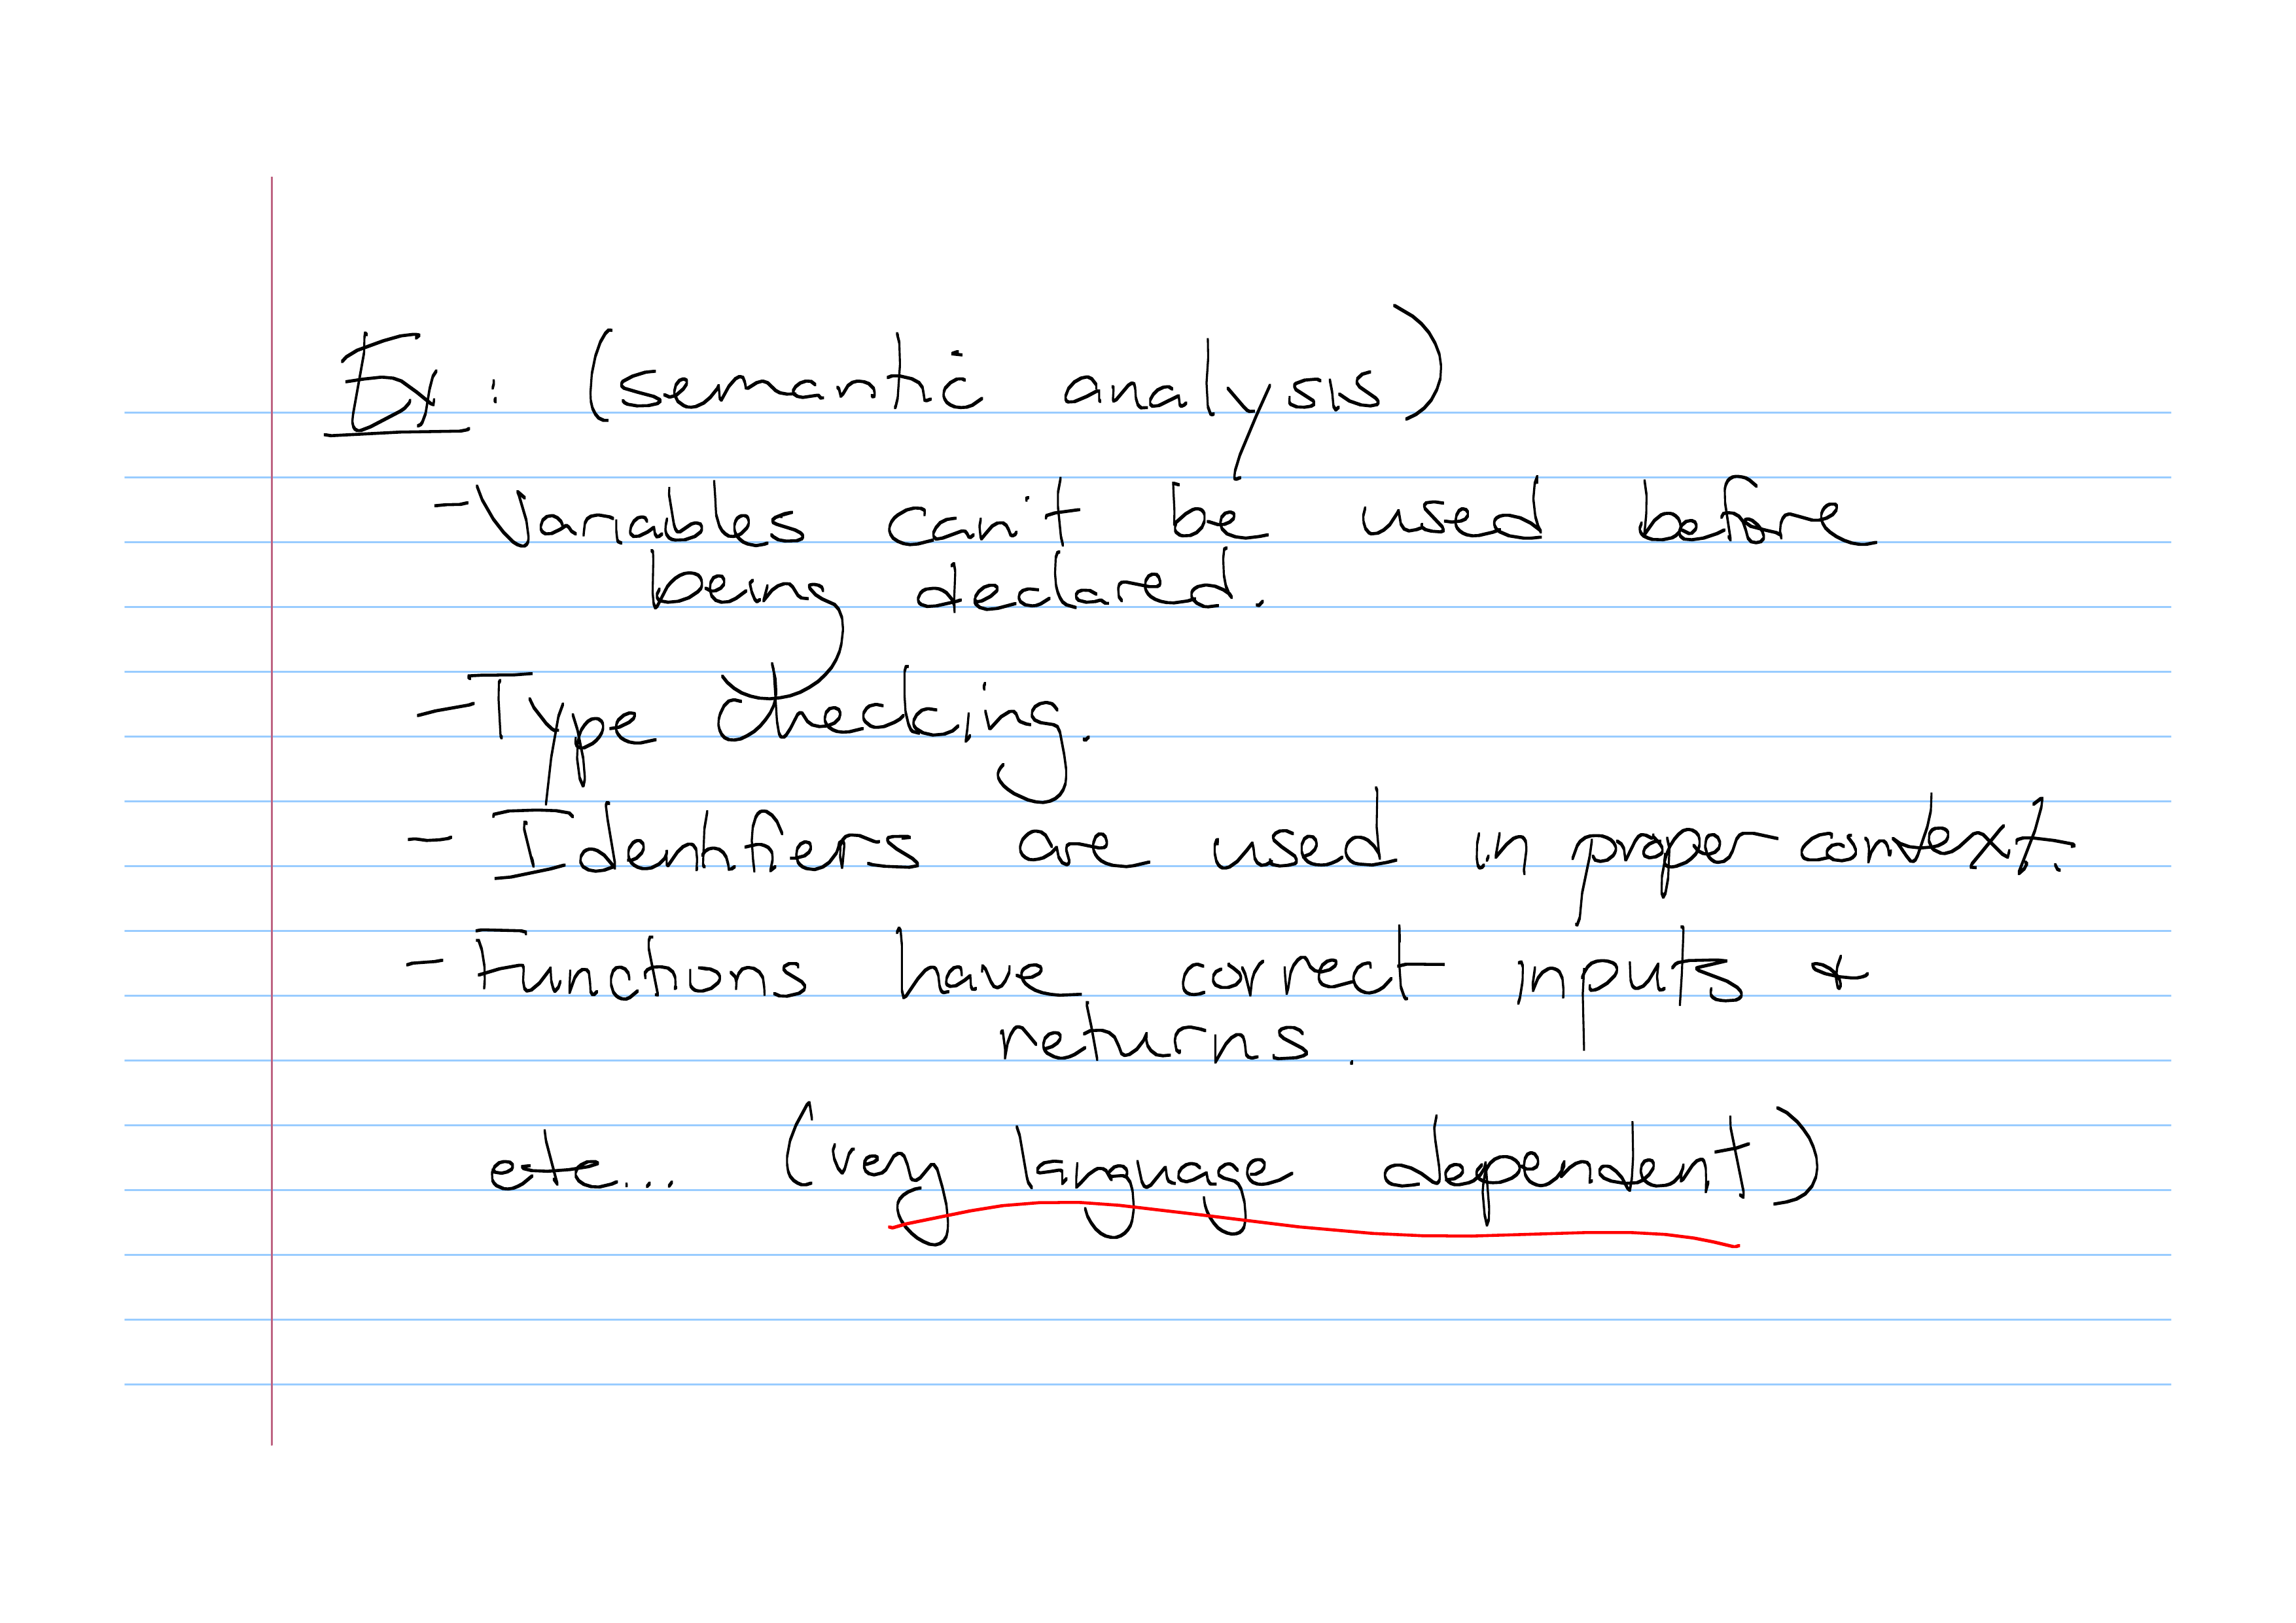 Ex: (semantic analysis)
- Variables can't be used before
being declared.
- Type checking.
- Identifiers are used in proper context.
- Functions have correct inputs +
returns.
etc... (very language dependent)